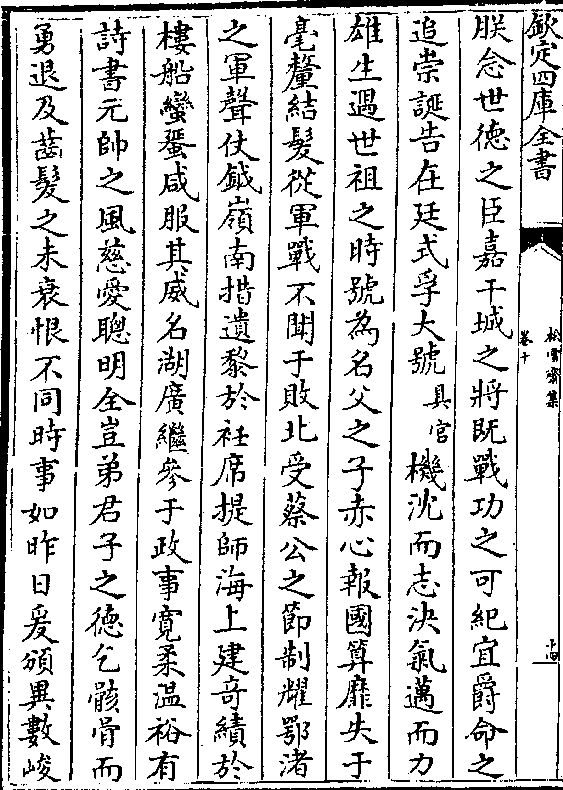 欽定四庫全書
松雪齋集
卷十
十四
朕念世德之臣嘉干城之將既戰功之可紀宜爵命之
追崇誕告在廷式孚大號具官機沈而志決氣邁而力
雄生遇世祖之時號為名父之子赤心報國算靡失于
毫釐結髪從軍戰不聞于敗北受蔡公之節制耀鄂渚
之軍聲仗鉞嶺南措遺黎於衽席提師海上建竒績於
樓船蠻蜑咸服其威名湖廣繼參于政事寛柔温裕有
詩書元帥之風慈愛聰明全豈弟君子之德乞骸骨而
勇退及齒髪之未衰恨不同時事如昨日爰頒異數峻